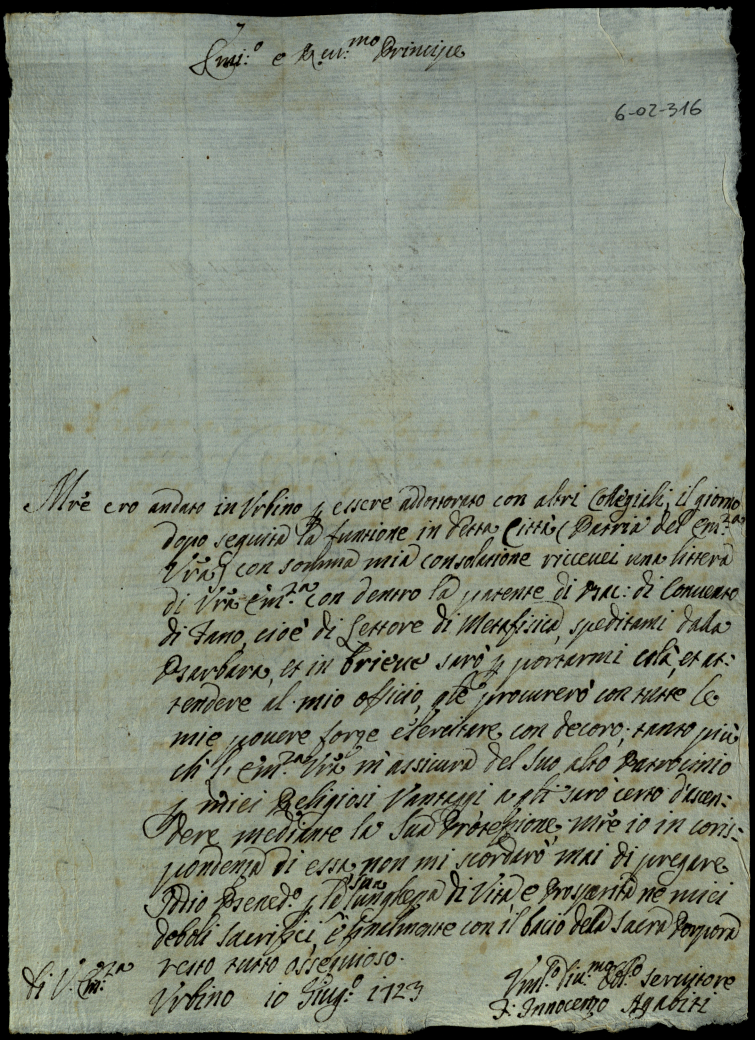 Em:º e Rev:mo Principe
6-02-316
Mrẽ ero andato in Urbino p essere addottorato con altri Collegiali, il giorno
dopo seguita la funtione in detta Città (Patria del Em:za
Vrã) con somma mia consolatione riccevei una littera
di Vrã Em:za con dentro la patente di Bac: di Convento
di Fano, cioè di Lettore di Metafisica, speditami dalla
Barbara, et in brieve sarò p portarmi colà, et at:
tendere al mio officio, qle procurerò con tutte le
mie povere forze esercitare con decoro; tanto più
ch l' Em:za Vrã m'assicura del suo alto Patrocinio
p miei Religiosi Vantaggi a qli sarò certo d'ascen:
dere mediante la Sua Protessione, Mrẽ io in coris:
pondenza di essa non mi scorderò mai di pregare
Idio Bened:º p la sua lunghezza di Vita e Prosperità ne miei
deboli sacrifici, e finalmente con il bacio dela Sacra Porpora
resto tutto ossequioso.
di V: Em:za
Urbino 10 Giug:º 1723
Servitore
F: Innocenzo Agabiti